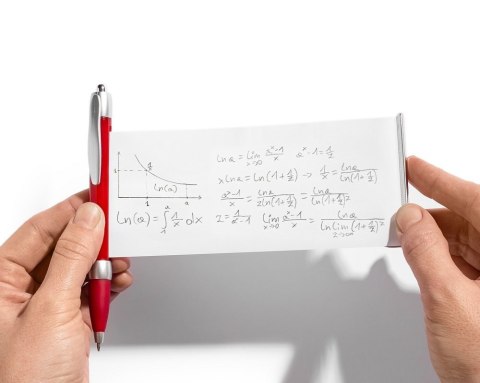 ln(a)
1 a
ln(a) = ∫₁ᵃ 1/x dx
ln a = lim x→0 (aˣ-1)/x aˣ-1 = 1/z
x ln a = ln(1+1/z) → 1/x = ln a / ln(1+1/z)
(aˣ-1)/x = ln a / z ln(1+1/z) = ln a / ln(1+1/z)ᶻ
z = 1/(aˣ-1) lim x→0 (aˣ-1)/x = ln a / ln lim z→∞ (1+1/z)ᶻ